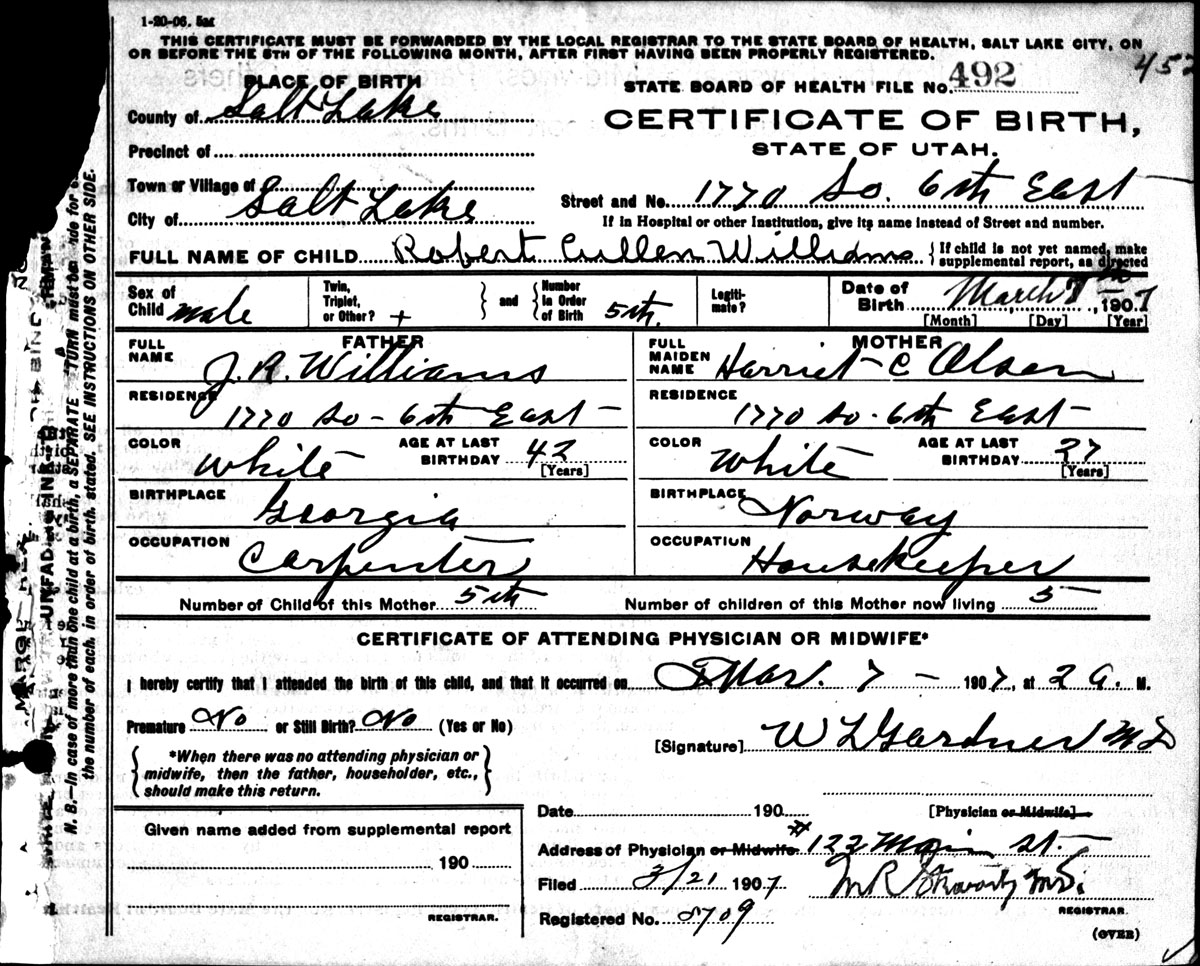 1-20-06. 5m
THIS CERTIFICATE MUST BE FORWARDED BY THE LOCAL REGISTRAR TO THE STATE BOARD OF HEALTH, SALT LAKE CITY, ON
OR BEFORE THE 5TH OF THE FOLLOWING MONTH, AFTER FIRST HAVING BEEN PROPERLY REGISTERED.
452
PLACE OF BIRTH
STATE BOARD OF HEALTH FILE NO. 492
County of Salt Lake
CERTIFICATE OF BIRTH,
Precinct of
STATE OF UTAH.
Town or Village of
Street and No. 1770 So. 6th East
City of Salt Lake
If in Hospital or other Institution, give its name instead of Street and number.
FULL NAME OF CHILD Robert Cullen Williams {If child is not yet named, make supplemental report, as directed
Sex of Child male
Twin, Triplet, or Other? + } and { Number in Order of Birth 5th.
Legitimate?
Date of Birth March 7th, 1907
[Month] [Day] [Year]
FATHER
MOTHER
FULL NAME J. R. Williams
FULL MAIDEN NAME Harriet C Olsen
RESIDENCE 1770 So - 6th East
RESIDENCE 1770 So. 6th East
COLOR White AGE AT LAST BIRTHDAY 42 [Years]
COLOR White AGE AT LAST BIRTHDAY 27 [Years]
BIRTHPLACE Georgia
BIRTHPLACE Norway
OCCUPATION Carpenter
OCCUPATION Housekeeper
Number of Child of this Mother 5th Number of children of this Mother now living 5
CERTIFICATE OF ATTENDING PHYSICIAN OR MIDWIFE*
I hereby certify that I attended the birth of this child, and that it occurred on Mar. 7 - 1907, at 2 a. M.
Premature No or Still Birth? No (Yes or No)
[Signature] W L Gardner MD
{*When there was no attending physician or
midwife, then the father, householder, etc.,
should make this return.}
Date 190 [Physician or Midwife]
Given name added from supplemental report
190
REGISTRAR.
Address of Physician or Midwife # 122 Main St.
Filed 3/21 1907
REGISTRAR.
Registered No. 8709
(OVER)
N. B.—In case of more than one child at a birth, a SEPARATE RETURN must be made for
the number of each, in order of birth, stated. SEE INSTRUCTIONS ON OTHER SIDE.